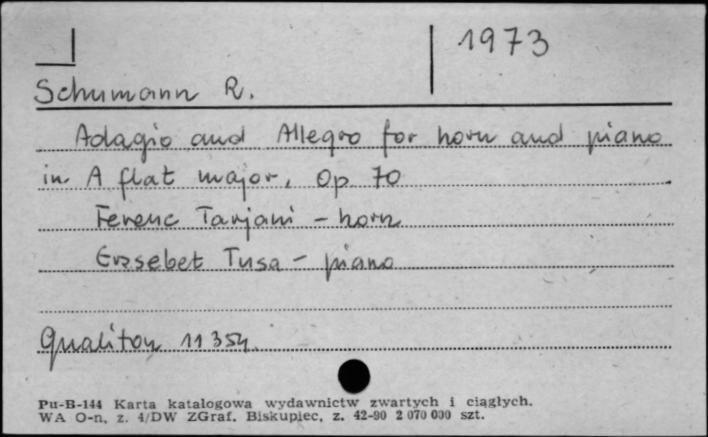 1973
Schumann R.
Adagio and Allegro for horn and piano
in A flat major, Op 70
Ferenc Tarjani - horn
Erzsebet Tusa - piano
Qualiton 11354.
Pu-B-144 Karta katalogowa wydawnictw zwartych i ciągłych.
WA O-n, z. 4/DW ZGraf. Biskupiec, z. 42-90 2 070 000 szt.